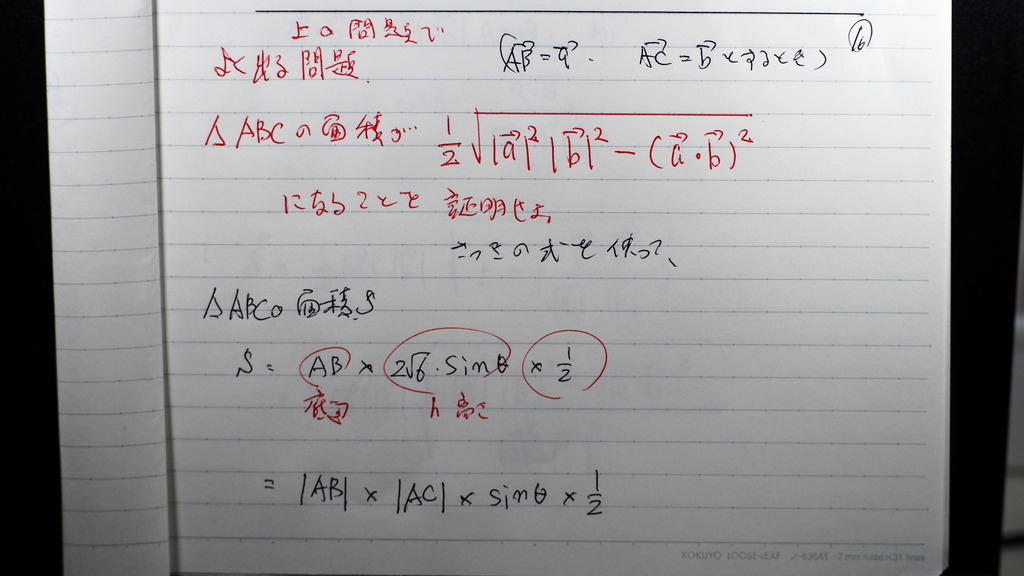 上の問題で
よく出る問題.
(AB→=a→. AC→=b→とするとき)
⑯
△ABCの面積が… 1/2 √|a→|²|b→|²-(a→・b→)²
になることを 証明せよ。
さっきの式を使って、
△ABCの面積S
S = AB × 2√6・sinθ × 1/2
底辺 h 高さ
= |AB| × |AC| × sinθ × 1/2
KOKUYO LOOSE-LEAF ノ-836AT 7 mm ruled×31 lines